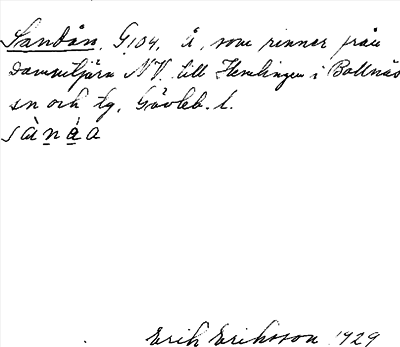 Sandån. G104, å, som rinner från
Dammtjärn N.V. till Hemlingen i Bollnäs
sn och tg, Gävleb. l.
sàn̲á̲a
Erik Eriksson 1929